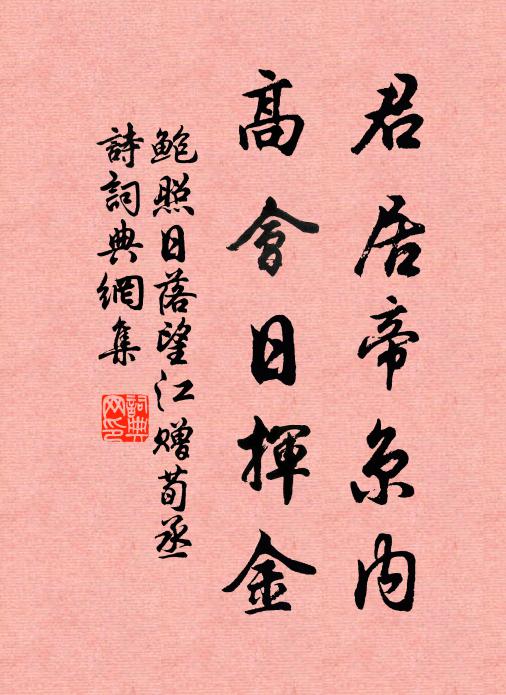 君居帝京内
高會日揮金
鲍照日落望江赠荀丞
詩詞典網集
詞典
网印